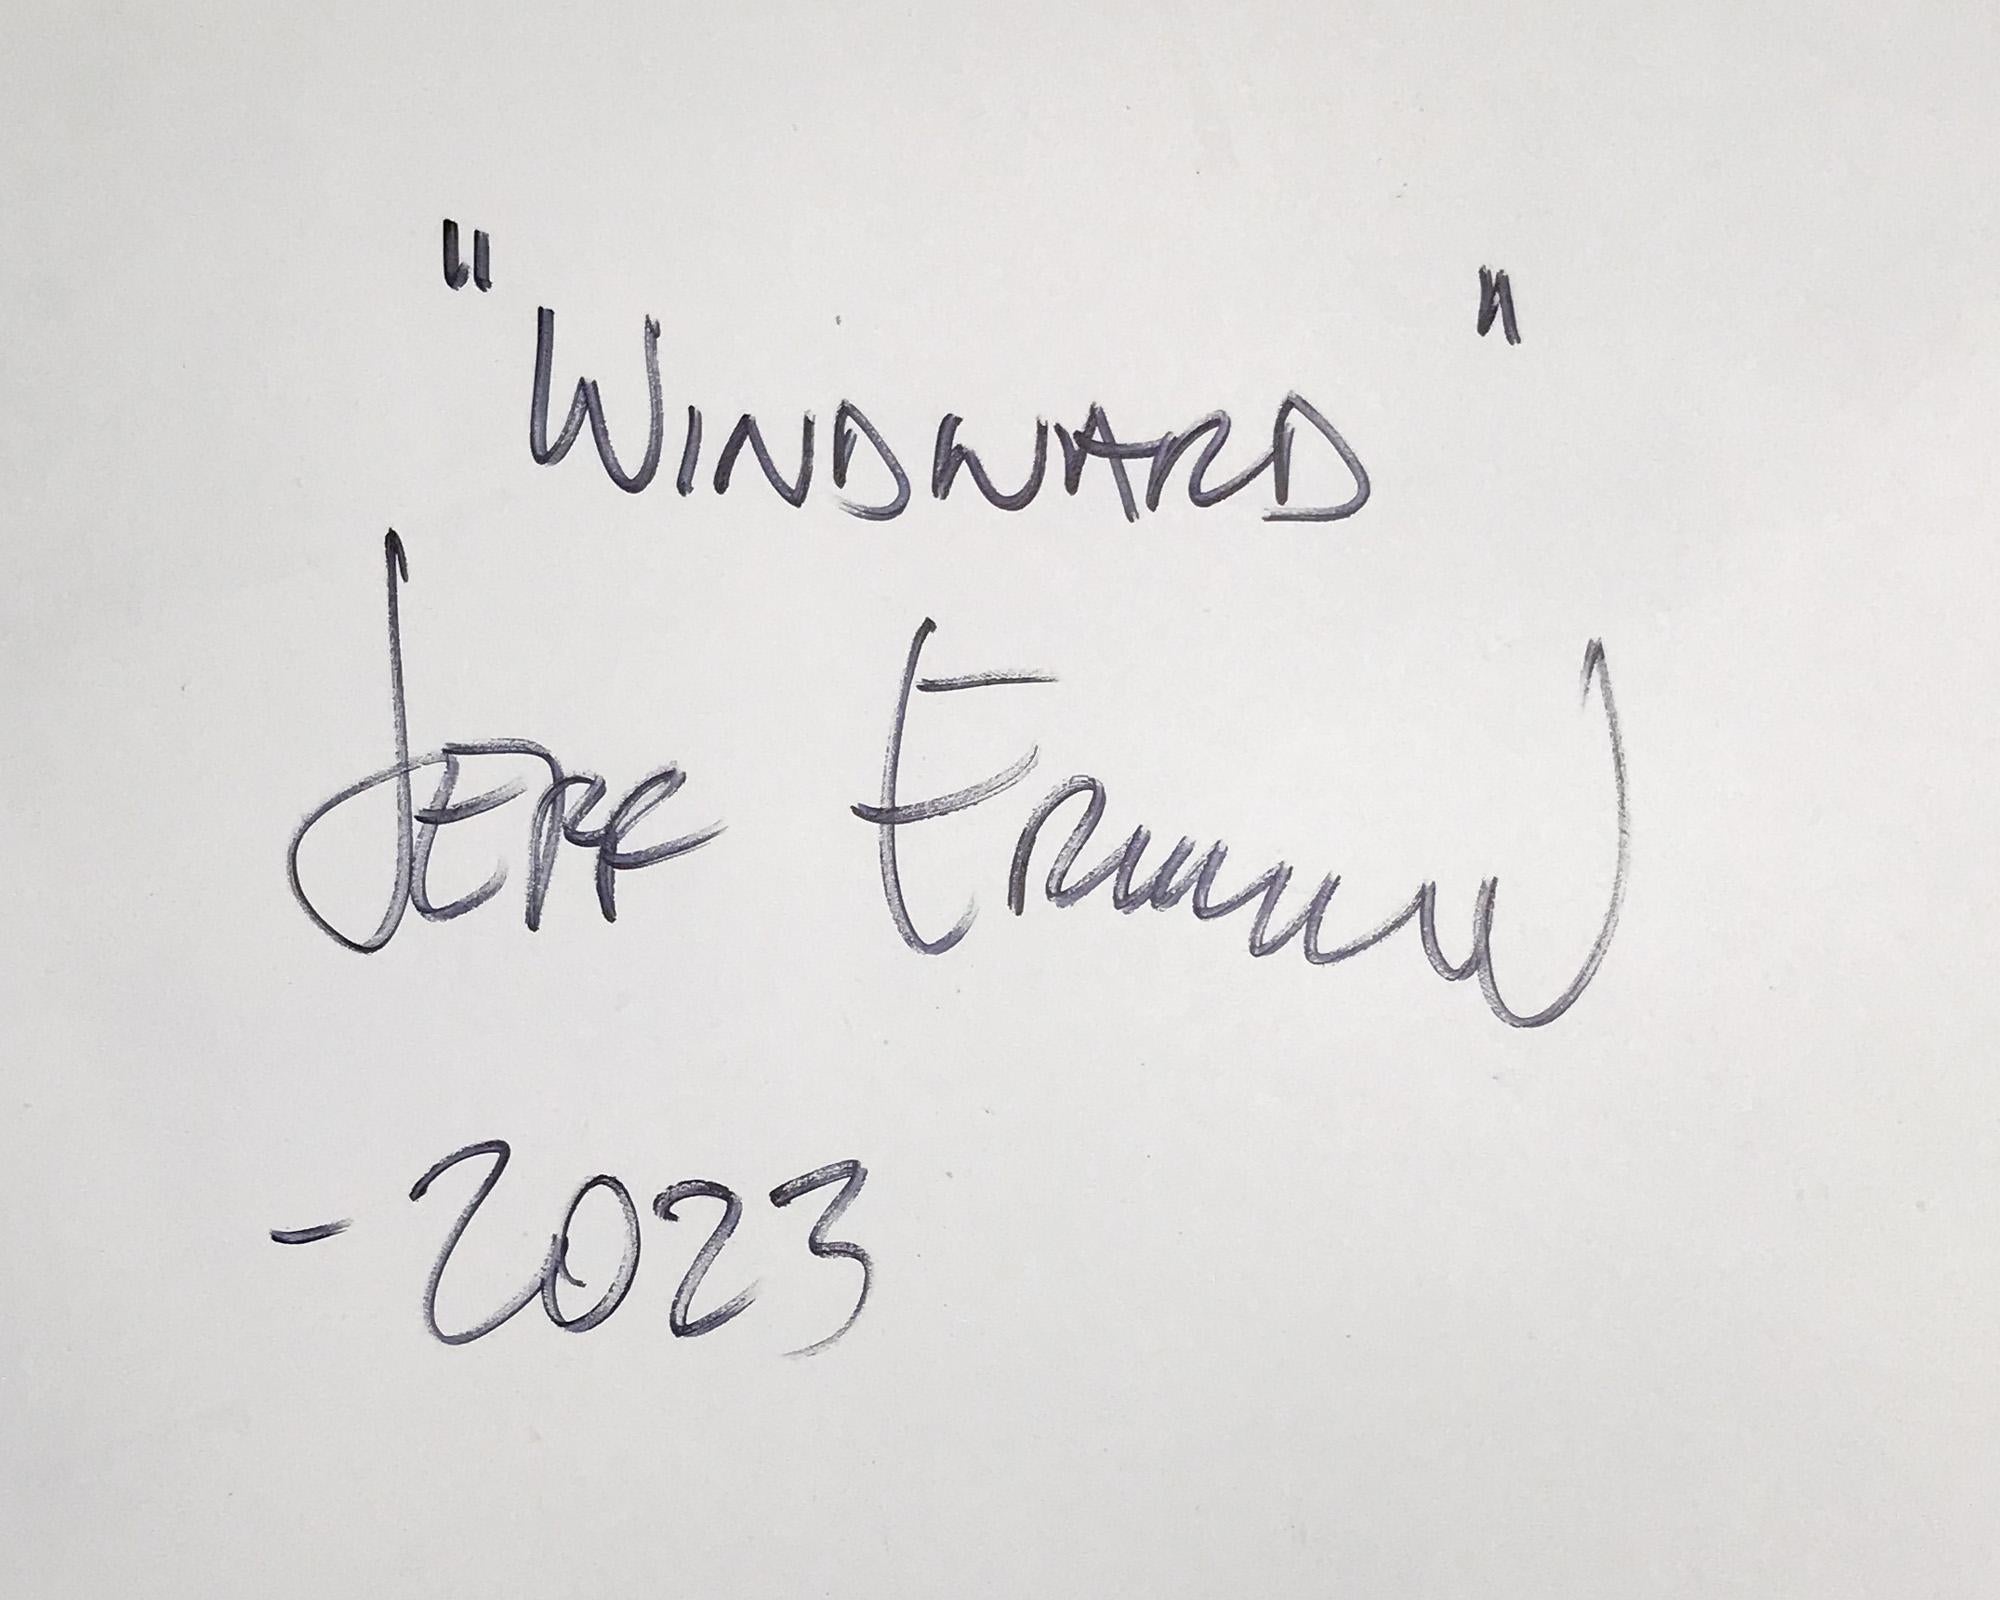 "WINDWARD"
JEFF
-2023